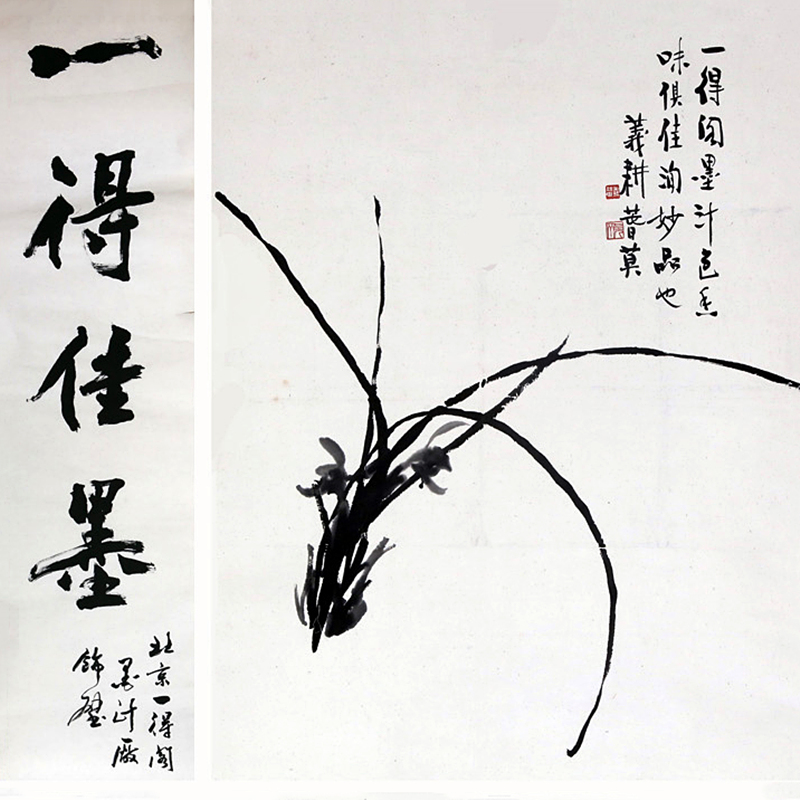 一得佳墨
北京一得阁
墨汁厰
饰壁
一得阁墨汁色香
味俱佳洵妙品也
義耕